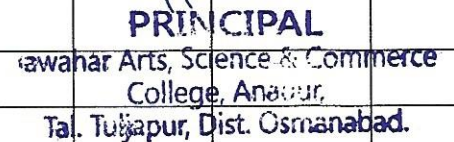 PRINCIPAL
Jawahar Arts, Science & Commerce
College, Anadur,
Tal. Tuljapur, Dist. Osmanabad.